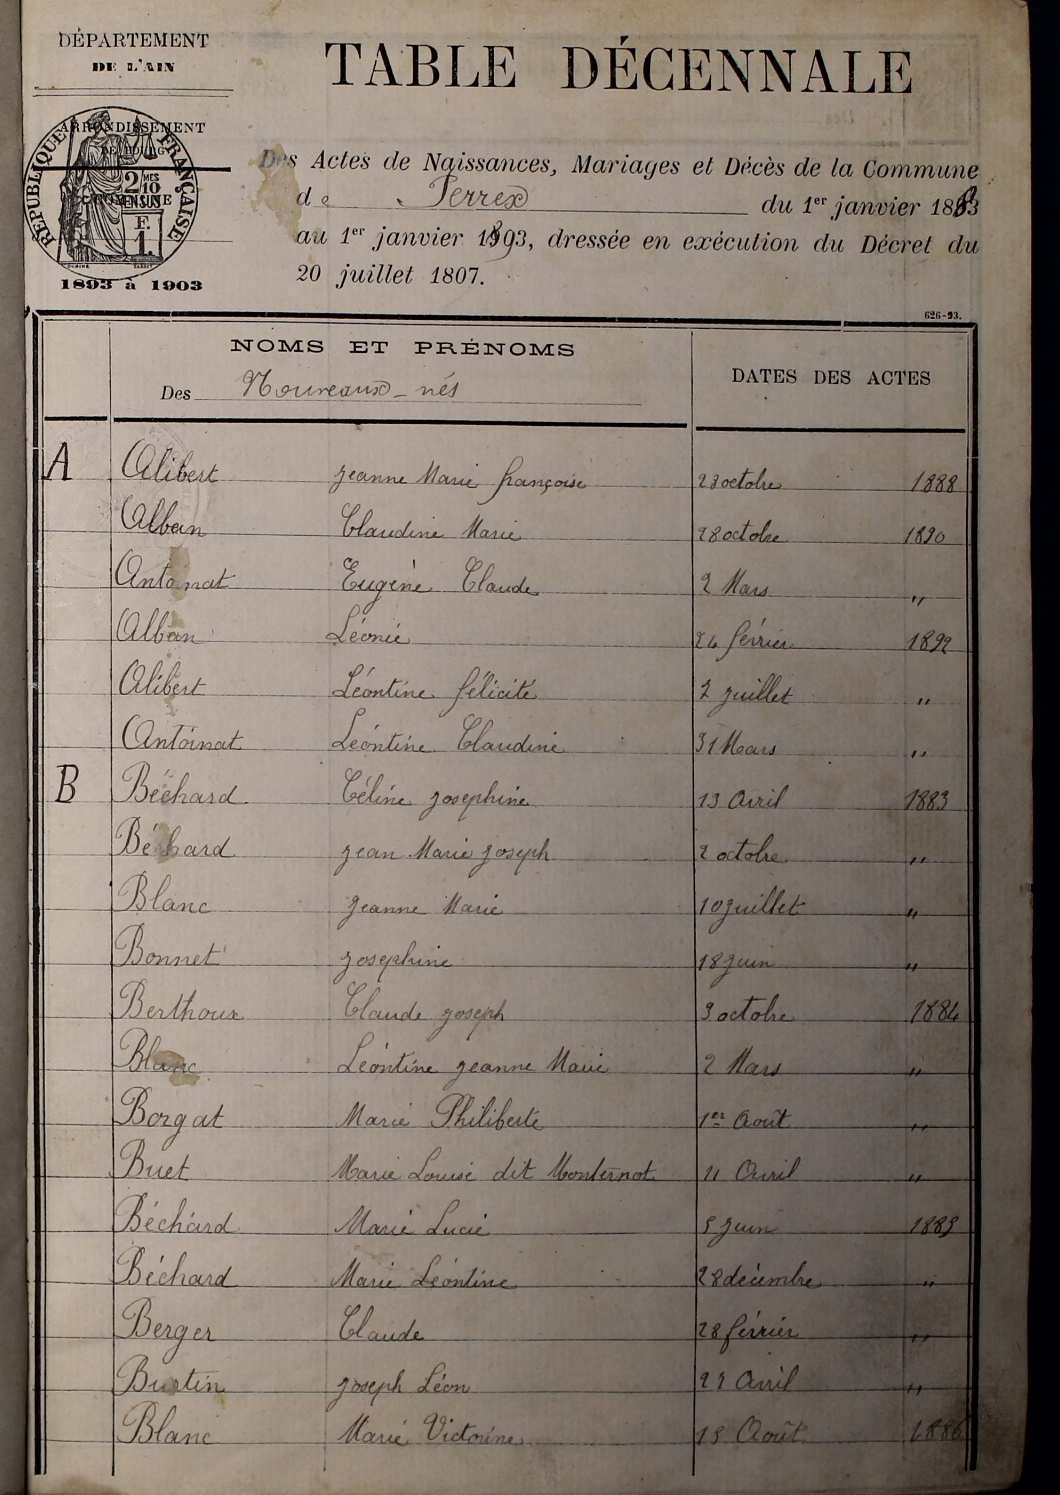 DÉPARTEMENT
DE L'AIN
TABLE DÉCENNALE
ARRONDISSEMENT
DE BOURG
RÉPUBLIQUE FRANÇAISE
2 MES 10
EN SUS
COMMUNE
F.
1.
1893 à 1903
Des Actes de Naissances, Mariages et Décès de la Commune
de Perrex du 1er janvier 1883
au 1er janvier 1893, dressée en exécution du Décret du
20 juillet 1807.
626-93.
NOMS ET PRÉNOMS
Des Nouveaux-nés
DATES DES ACTES
A Alibert Jeanne Marie françoise 23 octobre 1888
Alban Claudine Marie 28 octobre 1890
Antoinat Eugène Claude 2 Mars "
Alban Léonie 24 février 1892
Alibert Léontine félicité 2 juillet "
Antoinat Léontine Claudine 31 Mars "
B Béchard Céline josephine 13 Avril 1883
Béchard jean Marie joseph 2 octobre "
Blanc jeanne Marie 10 juillet "
Bonnet josephine 18 juin "
Berthoux Claude joseph 9 octobre 1884
Blanc Léontine jeanne Marie 2 Mars "
Borgat Marie Philiberte 1er Août "
Buet Marie Louise dit Monternot 11 Avril "
Béchard Marie Lucie 5 juin 1885
Béchard Marie Léontine 28 décembre "
Berger Claude 28 février "
Burtin joseph Léon 22 Avril "
Blanc Marie Victorine 15 Août 1886